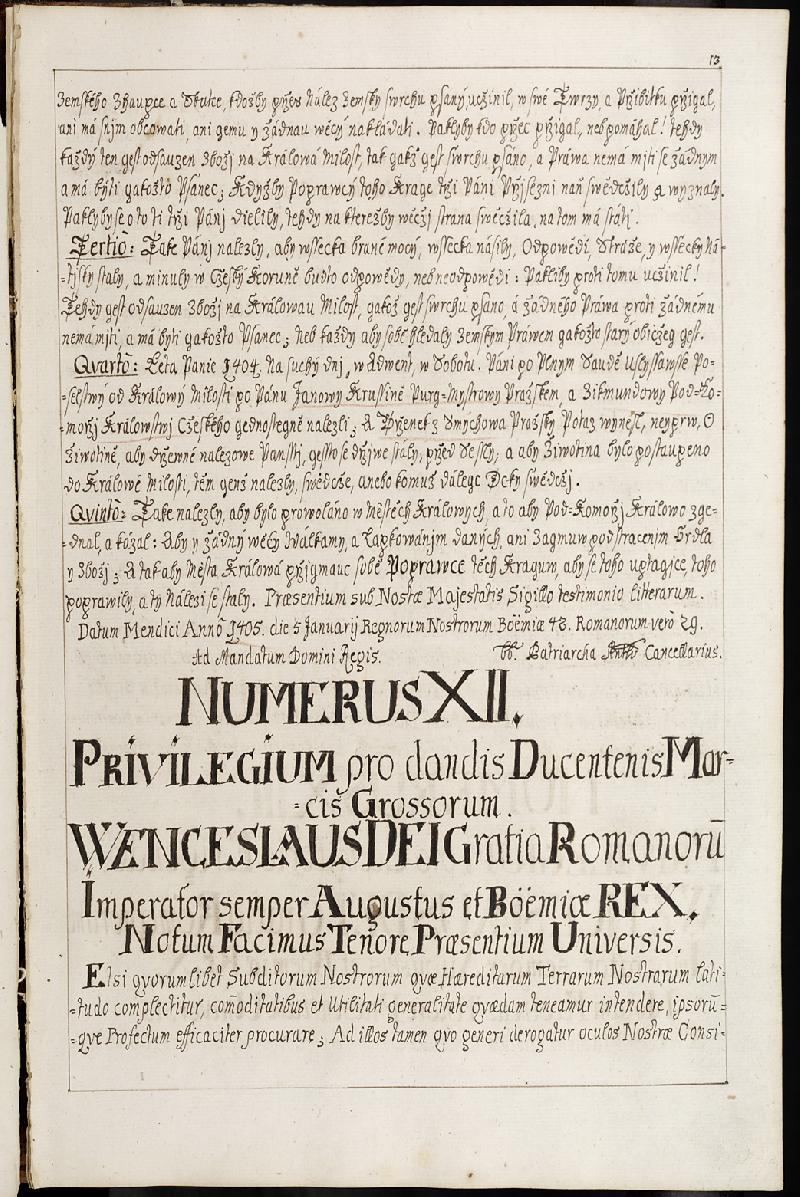 13
Zemského Zhaupce a Škůdce, kdožby přes Nález Zemský swrchu psaný učinil, w swé Twrzy, a Přibitku přigal,
ani má s ním obcowati, ani gemu y žádnau wěcý nakládati. Paklyby kdo přec přigal, neb pomáhal! Tehdy
každý ten gest odsauzen Zbožj na Králowů Milost, tak gakž gest swrchu psáno, a Práwa nemá mjti se žádnym
a má býti gakožto Psanec; Kdyžby Poprawcy toho Krage tři Páni Přjsezni naň swědčily a wyznaly.
Paklyby se o to ti tři Pánj dielily, tehdy na kterežby wěčžj strana swěcžila, na tom má státj.
Tertiò: Take Pánj nalezly, aby wssecka brané mocý, wssecka násily, Odpowědi, Stráže, y wssecky Ná-
=tisky staly, a minuly w Cžeský Koruně budto odpowědy, neb neodpowědi: Pakliby proti tomu učžinil!
Tehdy gest odsauzen Zbožj na Králowau Milost, gakož gest swrchu psano, a žádného Práwa proti žádnému
nemá mjti, a má býti gakožto Psanec; neb každý aby sobě hledaly Zemským Práwem gakožto starý običeg gest.
Qvartò: Léta Panie 1404. Na suchý dnj, w Adwent, w Sobotu. Páni po Plnym Saudě Uslyssawsse Po-
=selstwý od Králowý Milosti po Pánu Janowy Krussině Purg=Mystrowy Pražském, a Zikmundowy Pod=Ko-
=mořj Králowstwj Cžeského gednostegně nalezli; A Přzenek z Smychowa Pražsky Potaz wynesl, neyprw, O
Žiwotině, aby držemné nalezowe Pansstj, gessto se držjwe staly, przed Dessky; a aby Žiwotina bylo postaupeno
do Králowé Milosti, těm genž nalezly, swědčše, anebo komuž dálegc Dcky swědšj.
Qvintò: Take nalezly, aby bylo prowoláno w Městěch Králowých, a to aby Pod=Komořj Králowo zge-
=dnal, a kázal: Aby y žádný wěcý Walkamy, a Łapkowánjm daných, ani Zagmuw pod stracenjm Hrdla
y Zbožj; A tak aby Města Králowá přigmauc sobě Poprawce těch Kraguw, aby se toho uptagjce, toho
poprawily, a ty Nálezi se staly. Præsentium sub Nostræ Majestatis Sigillo testimonio litterarum.
Datum Mendici Annô 1405. die 5 Januarij Regnorum Nostrorum Boëmiæ 42. Romanorum verò 29.
Ad Mandatum Domini Regis. Patriarcha Cancellarius.
NUMERUS XII.
PRIVILEGIUM pro dandis Ducentenis Mar=
=cis Grossorum.
WENCESLAUS DEI Gratia Romanorũ
Imperator semper Augustus et Boëmiæ REX.
Notum Facimus Tenore Præsentium Universis.
Etsi qvorumlibet Subditorum Nostrorum qvæ Hæreditarum Terrarum Nostrarum lati-
=tudo complectitur, com̃oditatibus et Utilitati generalitate qvædam teneamur intendere, ipsorũ-
=qve Profectum efficaciter procurare; Ad illos tamen qvo generi derogatur oculos Nostræ Consi-